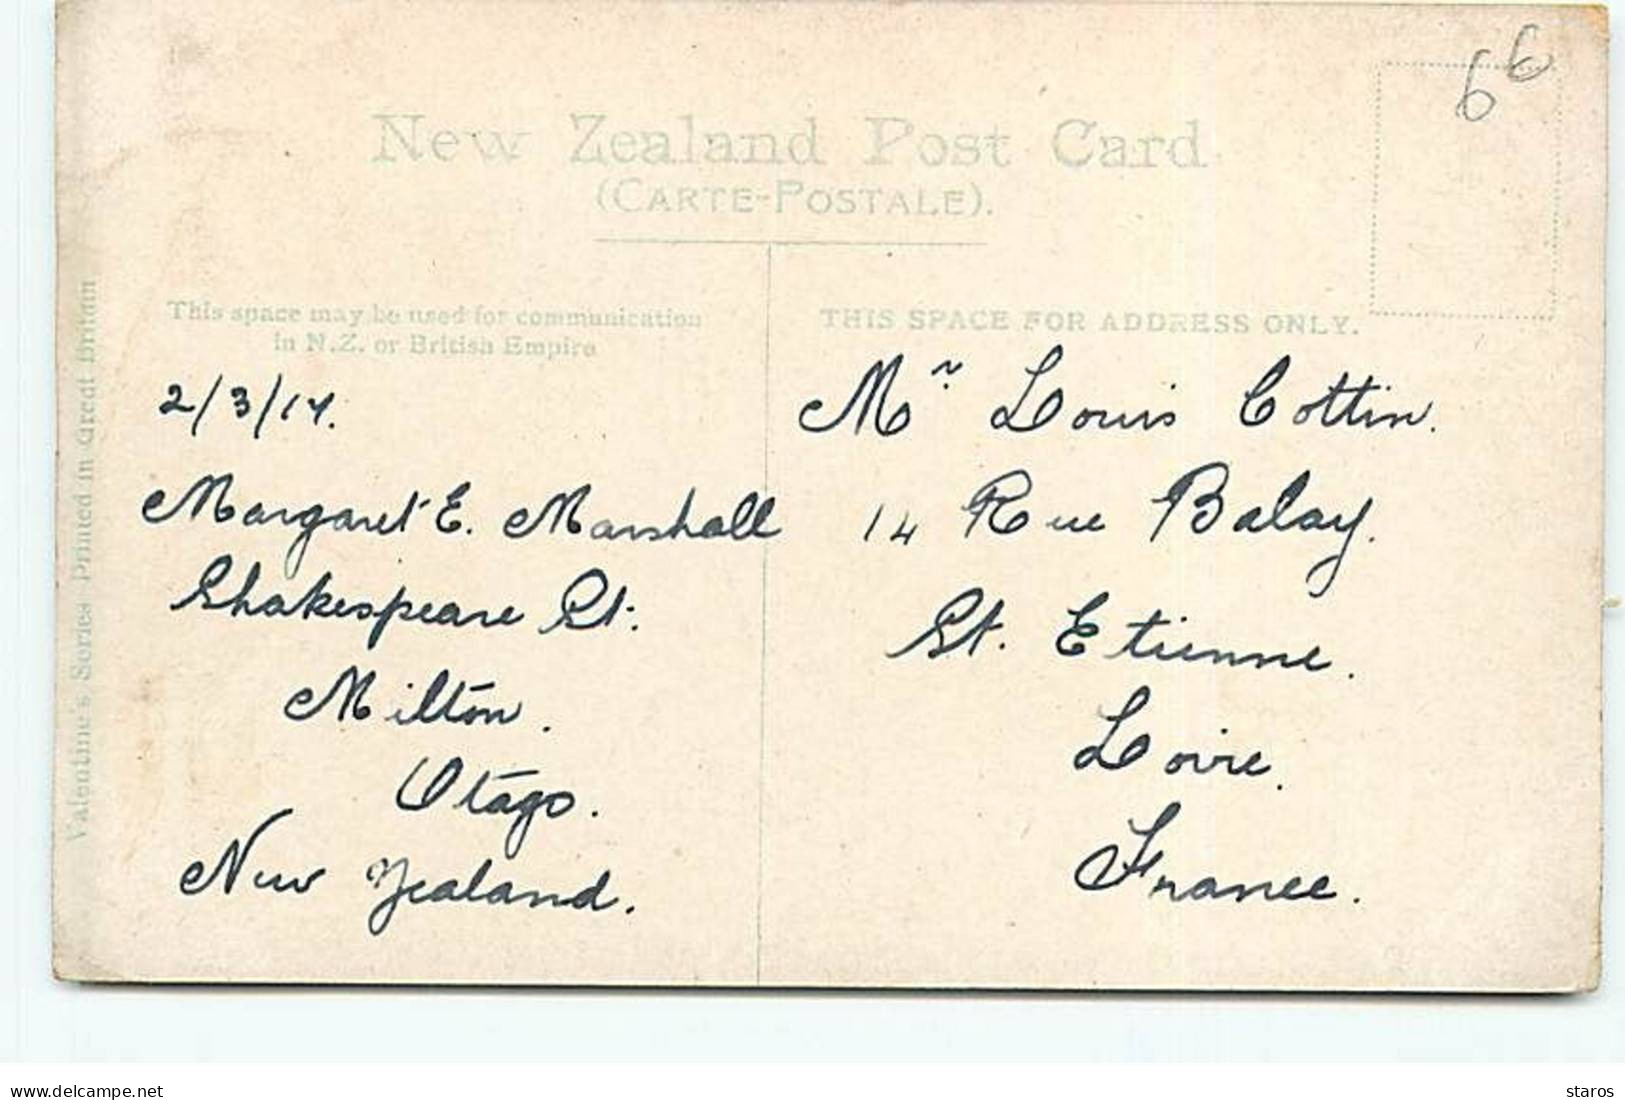 66
New Zealand Post Card
(CARTE-POSTALE).
This space may be used for communication
in N.Z. or British Empire
THIS SPACE FOR ADDRESS ONLY.
Valentine's Series Printed in Great Britain
2/3/14.
Margaret E. Marshall
Shakespeare St.
Milton.
Otago.
New Zealand.
Mr Louis Cottin.
14 Rue Balay.
St. Etienne.
Loire.
France.
www.delcampe.net
staros